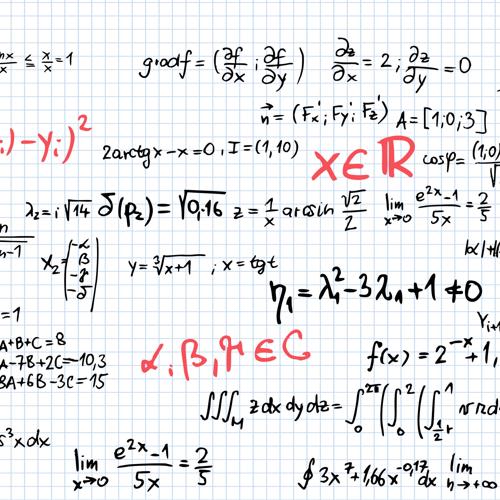 sinx/x ≤ x/x = 1
gradf = (∂f/∂x ; ∂f/∂y)
∂z/∂x = 2 ; ∂z/∂y = 0
n⃗ = (Fx' ; Fy' ; Fz')
A = [1;0;3]
i) - yi)²
2arctgx - x = 0 , I = (1,10)
x ∈ ℝ
cosφ = (1,0)
λ₂ = i√14
δ(ρ₂) = √0,16
z = 1/x arcsin √2/2
lim x→0 (e^2x - 1)/5x = 2/5
n-1
x₂ = (-α β -γ -δ)
y = ∛(x+1) ; x = tgt
|α|+|
η₁ = λ₁² - 3λ₁ + 1 ≠ 0
= 1
Yi+1
A+B+C = 8
A-7B+2C = -10,3
8A+6B-3C = 15
α, β, γ ∈ C
f(x) = 2^-x + 1,
∭M z dx dy dz = ∫0^2π (∫0^2 (∫½r^1
s³xdx
lim x→0 (e^2x - 1)/5x = 2/5
∮ 3x⁷ + 1,66x^-0,17 dx
lim n→+∞